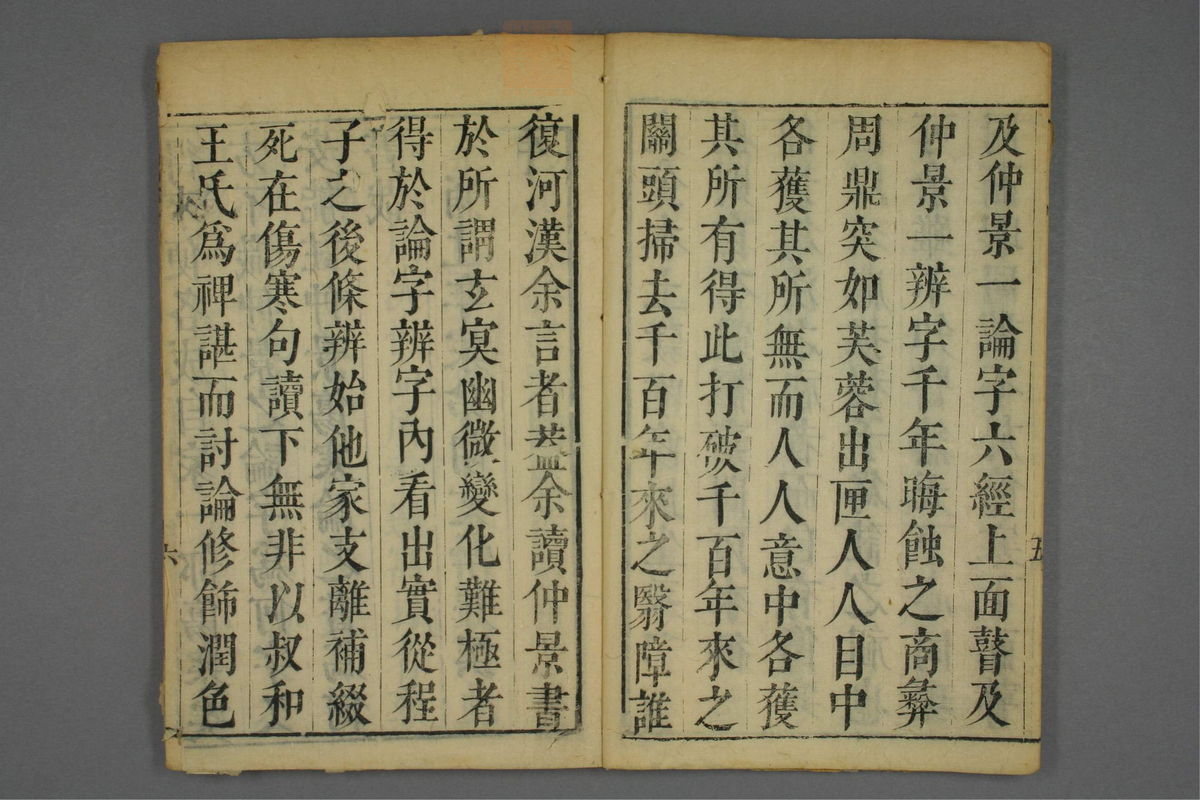 及仲景一論字六經上面瞽及
仲景一辨字千年晦蝕之商彝
周鼎突如芙蓉出匣人人目中
各獲其所無而人人意中各獲
其所有得此打破千百年來之
關頭掃去千百年來之翳障誰
五
復河漢余言者葢余讀仲景書
於所謂玄冥幽微變化難極者
得於論字辨字內看出實從程
子之後條辨始他家支離補綴
死在傷寒句讀下無非以叔和
王氏爲裨諶而討論修飾潤色
六